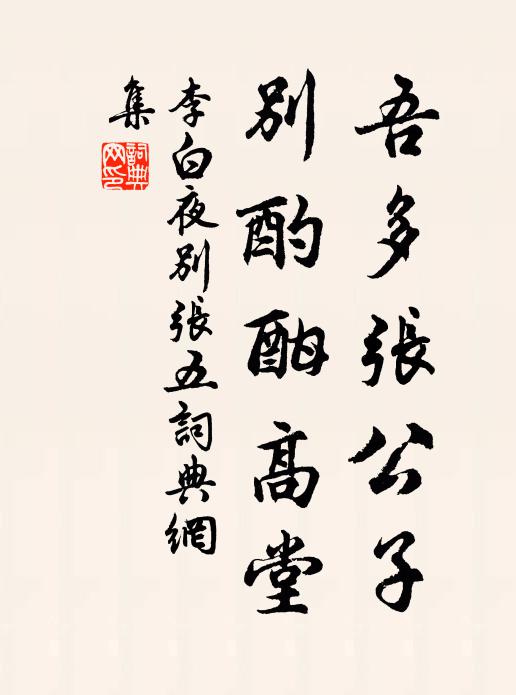 吾多張公子
別酌酣高堂
李白夜別張五詞典網
集
詞典網印